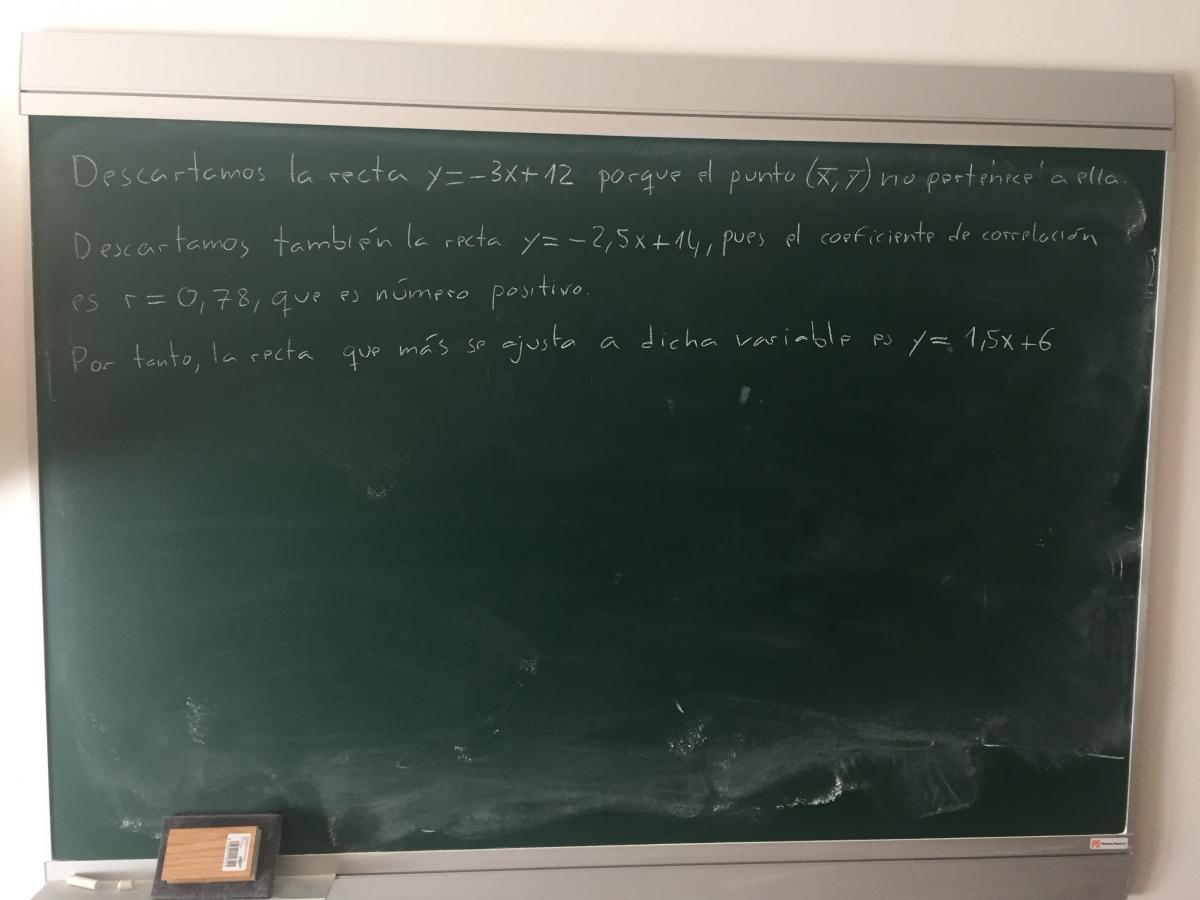 Descartamos la recta y=-3x+12 porque el punto (x̅, y̅) no pertenece a ella.
Descartamos también la recta y=-2,5x+14, pues el coeficiente de correlación
es r=0,78, que es número positivo.
Por tanto, la recta que más se ajusta a dicha variable es y= 1,5x+6